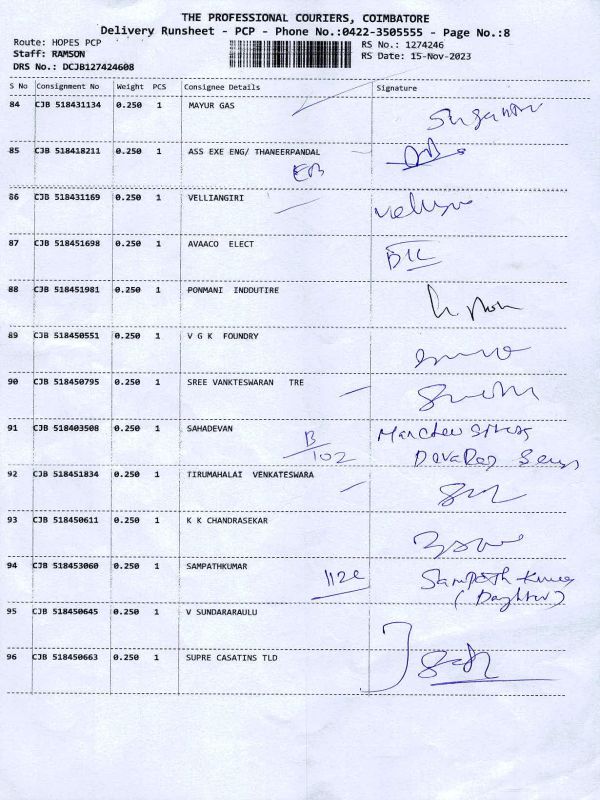 THE PROFESSIONAL COURIERS, COIMBATORE
Delivery Runsheet - PCP - Phone No.:0422-3505555 - Page No.:8
Route: HOPES PCP RS No.: 1274246
Staff: RAMSON RS Date: 15-Nov-2023
DRS No.: DCJB127424608
S No Consignment No Weight PCS Consignee Details Signature
84 CJB 518431134 0.250 1 MAYUR GAS
85 CJB 518418211 0.250 1 ASS EXE ENG/ THANEERPANDAL
EB
86 CJB 518431169 0.250 1 VELLIANGIRI
87 CJB 518451698 0.250 1 AVAACO ELECT
88 CJB 518451981 0.250 1 PONMANI INDDUTIRE
89 CJB 518450551 0.250 1 V G K FOUNDRY
90 CJB 518450795 0.250 1 SREE VANKTESWARAN TRE
91 CJB 518403508 0.250 1 SAHADEVAN
B/102
92 CJB 518451834 0.250 1 TIRUMAHALAI VENKATESWARA
93 CJB 518450611 0.250 1 K K CHANDRASEKAR
94 CJB 518453060 0.250 1 SAMPATHKUMAR
Sampath Kumar
(Daughter)
95 CJB 518450645 0.250 1 V SUNDARARAULU
96 CJB 518450663 0.250 1 SUPRE CASATINS TLD